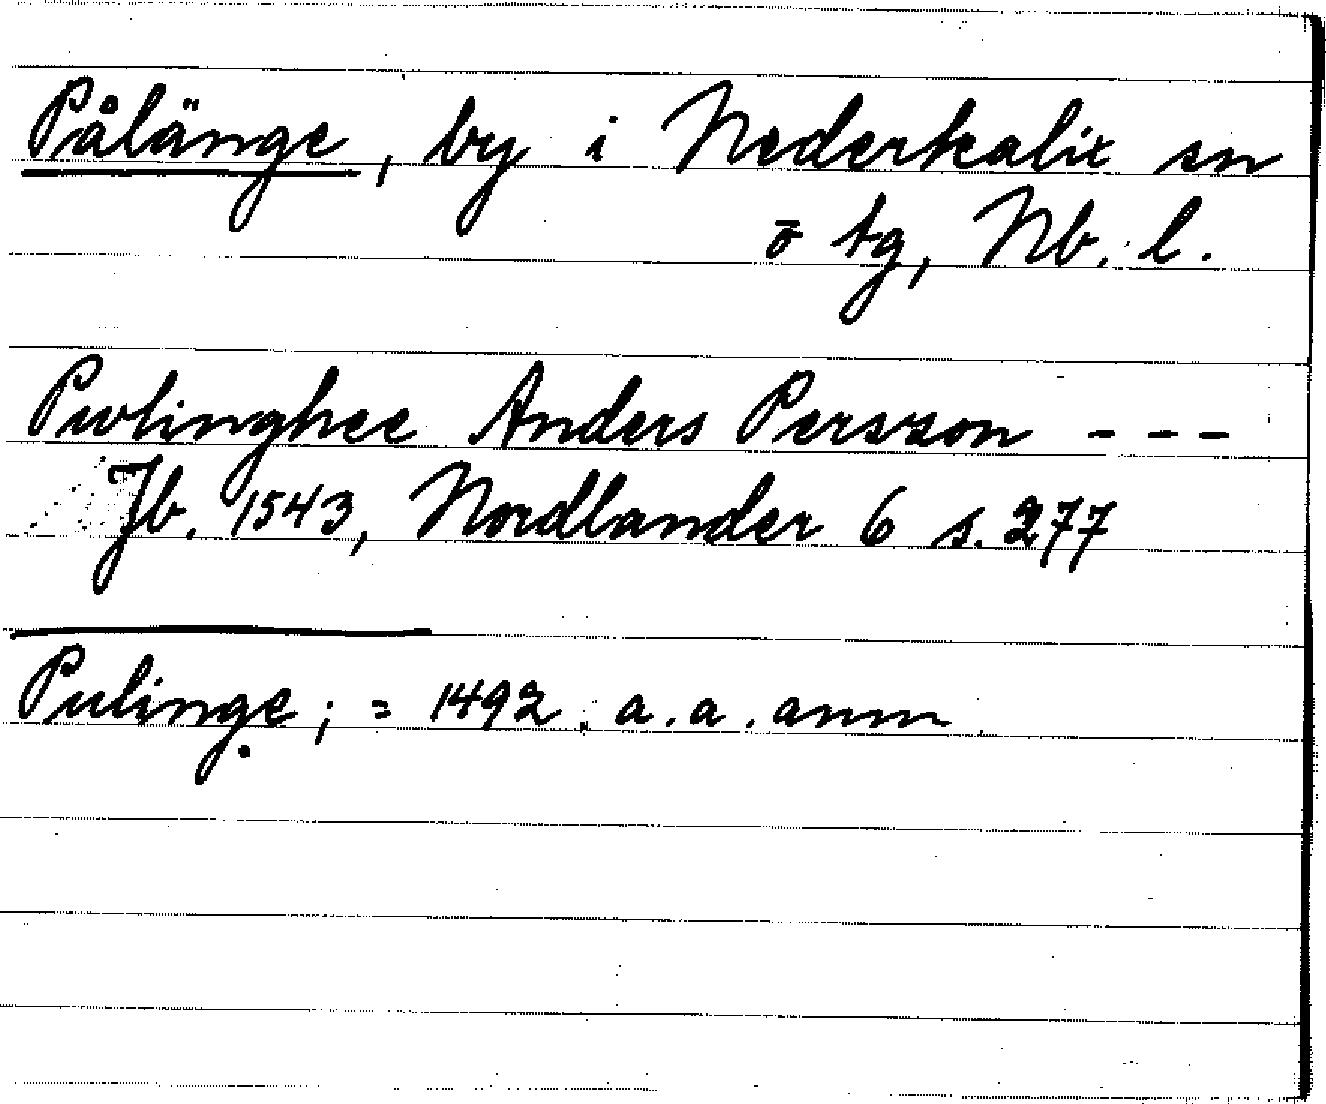 Pålänge, by i Nederkalix sn
o tg, Nb. l.
Pwlinghee Anders Persszon - - -
Jb. 1543, Nordlander 6 s. 277
Pulinge; = 1492. a. a. anm